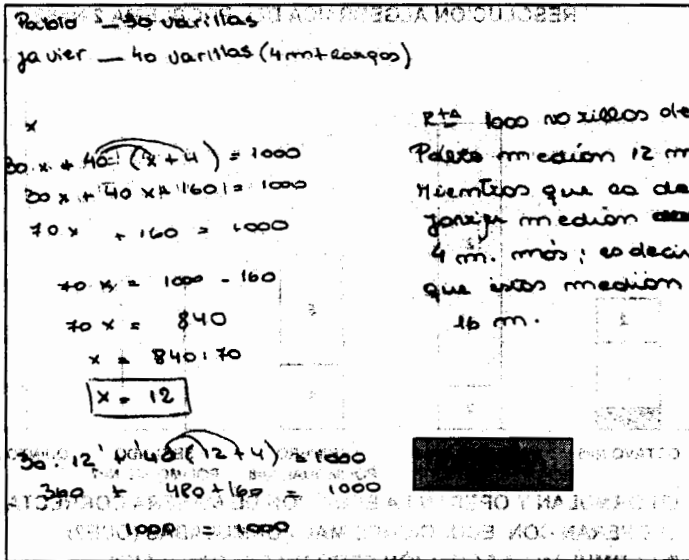 Pablo — 30 varillas
Javier — 40 varillas (4 m + largas)
x
30 x + 40 (x + 4) = 1000
30 x + 40 x + 160 = 1000
70 x + 160 = 1000
70 x = 1000 - 160
70 x = 840
x = 840 : 70
x = 12
30 . 12 + 40 (12 + 4) = 1000
360 + 480 + 160 = 1000
1000 = 1000
Rta 1000 varillas de
Pablo median 12 m
Mientras que la de
Javier median
4 m. más ; es decir
que éstas median
16 m.